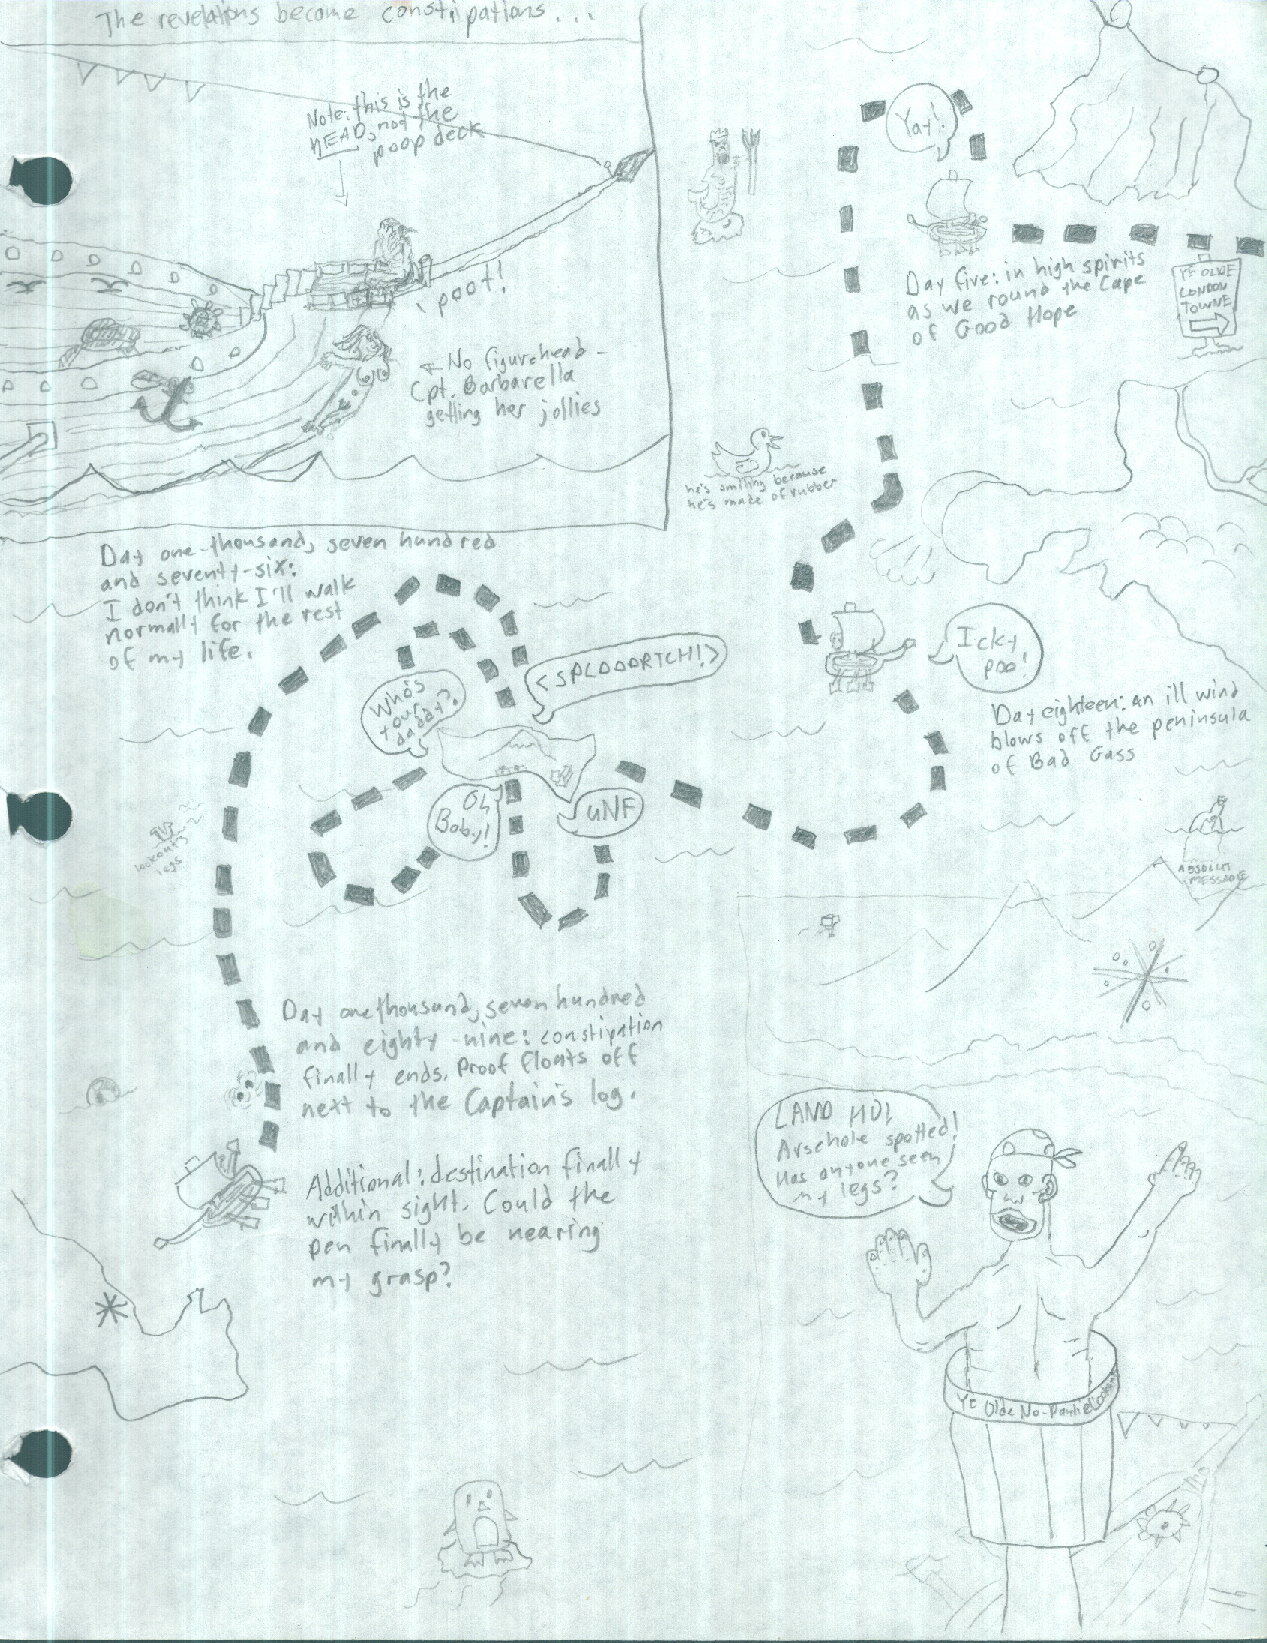 The revelations become constipations...
Note: this is the
HEAD, not the
poop deck
poot!
No figurehead -
Cpt. Barbarella
getting her jollies
Yay!
Day five: in high spirits
as we round the Cape
of Good Hope
YE OLDE
LONDON
TOWNE
he's smiling because
he's made of rubber
Icky
poo!
Day eighteen: an ill wind
blows off the peninsula
of Bad Gass
Day one-thousand, seven hundred
and seventy-six:
I don't think I'll walk
normally for the rest
of my life.
<SPLOOORTCH!>
Who's
your
daddy?
Oh
Baby!
UNF
lookout's
legs
MESSAGE
Day one thousand, seven hundred
and eighty-nine: constipation
finally ends. Proof floats off
next to the Captain's log.
Additional: destination finally
within sight. Could the
pen finally be nearing
my grasp?
LAND HO!
Arsehole spotted!
Has anyone seen
my legs?
Ye Olde No-Pantie